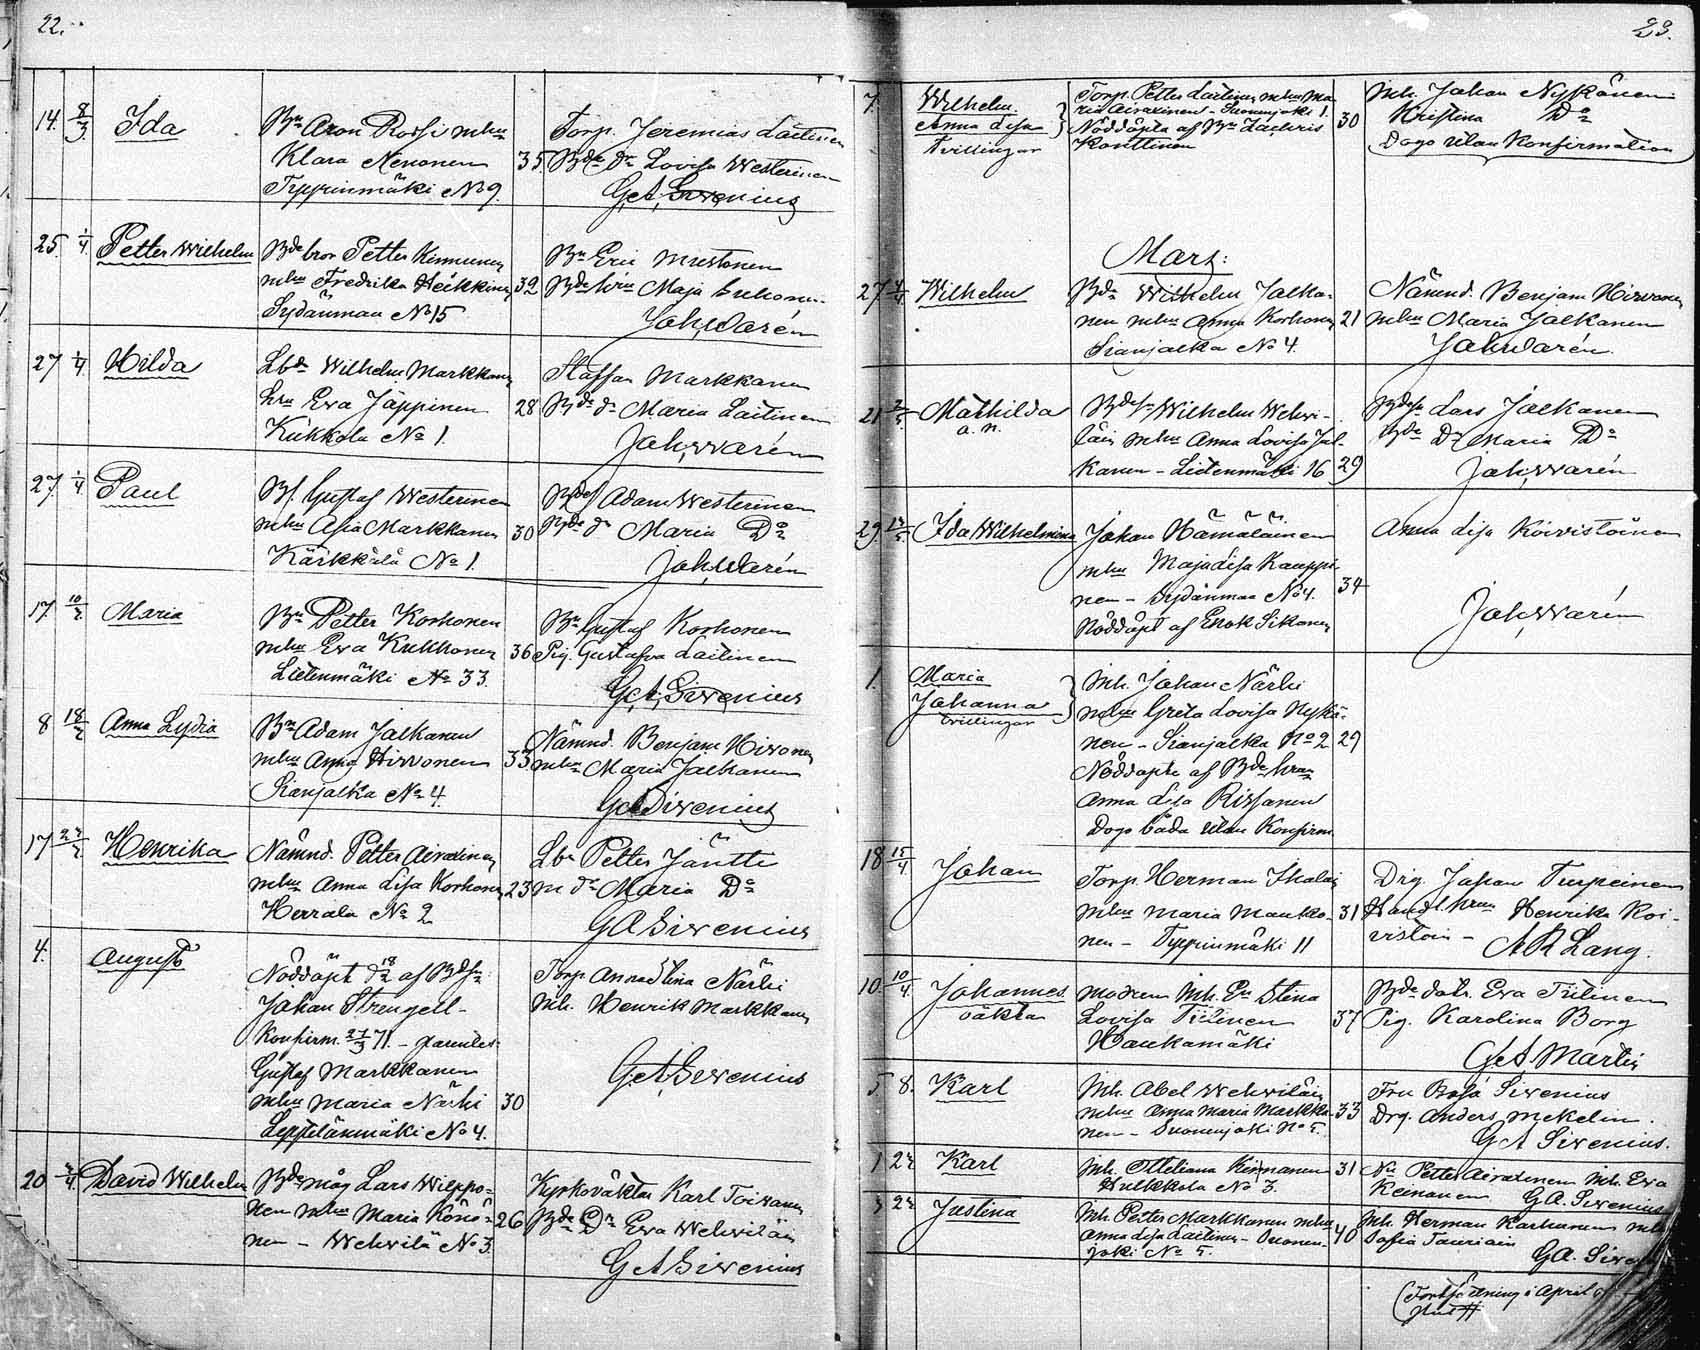 22.
14. 8/3 Ida
Bn Aron Rossi mhu
Klara Nenonen
Tyyrinmäki No 9.
35
Torp. Jeremias Laitinen
Bde dr Lovisa Westerinen
G,A, Sirenius
25. 1/4 Petter Wilhelm
Bde bror Petter Kinnunen
mhu Fredrika Heikkinen
Sydänmaa No 15
32
Bn Eric Mustonen
Bde hru Maja
Joh, Warén
27 1/4 Hilda
Lbde Wilhelm Markkanen
hru Eva Jäppinen
Kukkola No 1.
28
Staffan Markkanen
Bde dr Maria Laitinen
Joh, Warén
27. 1/4 Paul
Bs. Gustaf Westerinen
mhu Asia Markkanen
Kärkkälä No 1.
30
Bdes Adam Westerinen
Bde dr Maria Do
Joh, Warén
17. 10/2 Maria
Bn Petter Korhonen
mhu Eva Kukkonen
Lietenmäki No 33.
36
Bn Gustaf Korhonen
Pig. Gustafva Laitinen
G,A, Sirenius
8 18/2 Anna Lydia
Bn Adam Jalkanen
mhu Anna Hirvonen
Sianjalka No 4.
33
Nämnd. Benjam Hirvonen
mhu Maria Jalkanen
GASirenius
17 Henrika
Nämnd. Petter Airaxinen
mhu Anna Lisa Korhonen
Herrala No 2
23
Lbn Petter Jäntti
m dr Maria Do
GASirenius
4. August
Nöddöpt d 18/2 af Bdsn
Johan Strengell -
Konfirm. 21/3 71. - parentes:
Gustaf Markkanen
mhu Maria Närhi
Leppälänmäki No 4.
30
Torp. Anna Stina Närhi
Inh. Henrik Markkanen
GASirenius
20 David Wilhelm
Bde måg Lars Wilppo=
nen mhu Maria Könö=
nen - Wehvilä No 3.
26
Kyrkoväktar Karl Toivanen
Bde Dr Eva Wehviläin
GASirenius
23.
7. Wilhelm
Anna Lisa
Tvillingar
Torp. Petter Laitinen mhu Ma
ria Airaxinen - Suonenjoki 1.
Nöddöpta af Bn Zachris
Konttinen
30
Inh. Johan Nykänen
Kristina Do
Dogo utan Konfirmation
Mars:
27. 4/4 Wilhelm
Bdn Wilhelm Jalka-
nen mhu Anna Korhonen
Sianjalka No 4.
21
Nämnd. Benjam Hirvonen
mhu Maria Jalkanen
Joh, Warén.
21 Mathilda
a. n.
Bdes Wilhelm Wehvi-
läin mhu Anna Lovisa Jal-
kanen - Lietenmäki 16
29
Bdes Lars Jalkanen
Bde Dr Maria Do
Joh, Warén
29. Ida Wilhelmina
Johan Hämäläinen
mhu Maja Lisa Kauppi-
nen - Sydänmaa No 4.
Nöddöpt af Enok Sikanen
34
Anna Lisa Koivistoinen
Joh, Warén
1. Maria
Johanna
tvillingar
Inh. Johan Närhi
mhu Greta Lovisa Nykä-
nen - Sianjalka No 2
Nöddöpte af Bde hrun
Anna Lisa Rissanen
Dogo båda utan Konfirm.
29
18 15/4 Johan
Torp. Herman Ihalain
mhu Maria Manko-
nen - Tyyrinmäki 11
31
Drg. Johan Turpeinen
Handl. hrun Henrika Koi-
vistoin -
A R Lang.
10. 10/4. Johannes
oäkta
modren Inh. En Stina
Lovisa Tiilinen
Haukamäki
37
Bde dotr. Eva Tiilinen
Pig. Karolina Borg
G A Martin
5. 8. Karl
Inh. Abel Wehviläin
mhu Anna Maria Markka-
nen - Suonenjoki No 5.
33
Fru Rosa Sirenius
Drg. Anders Mekelin.
G A Sirenius.
1 Karl
Inh. Otteliana Kinnanen
Hulkkola No 3.
31
Nn Petter Airaxinen Inh. Eva
Keinanen GA. Sirenius
3 Justina
Inh. Petter Markkanen mhu
Anna Lisa Laitinen - Suonen-
joki No 5.
40
Inh. Herman Karhunen mh
Sofia Tauriain
GA. Siren
(Fortsättning i April